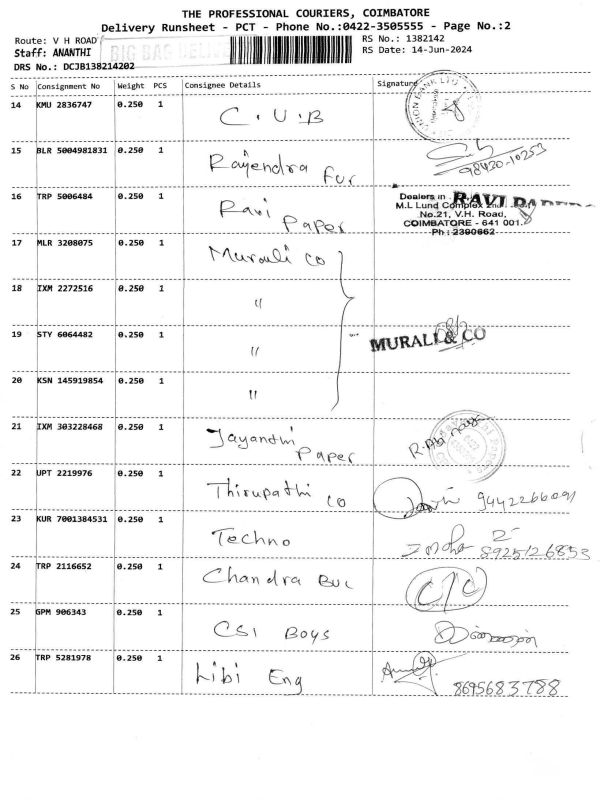 THE PROFESSIONAL COURIERS, COIMBATORE
Delivery Runsheet - PCT - Phone No.:0422-3505555 - Page No.:2
Route: V H ROAD
RS No.: 1382142
Staff: ANANTHI
BIG BAG DELIVE
RS Date: 14-Jun-2024
DRS No.: DCJB138214202
S No Consignment No Weight PCS Consignee Details Signature
14 KMU 2836747 0.250 1 C.U.B
15 BLR 5004981831 0.250 1 Rajendra Fur 98430-10253
16 TRP 5006484 0.250 1 Ravi Paper
Dealers in
RAVI PAPER
M.L Lund Complex
No.21, V.H. Road,
COIMBATORE - 641 001.
Ph : 2390662
17 MLR 3208075 0.250 1 Murali co
18 IXM 2272516 0.250 1 "
19 STY 6064482 0.250 1 " MURALI & CO
20 KSN 145919854 0.250 1 "
21 IXM 303228468 0.250 1 Jayanthi Paper
22 UPT 2219976 0.250 1 Thirupathi co 9442266091
23 KUR 7001384531 0.250 1 Techno 8925126853
24 TRP 2116652 0.250 1 Chandra Buc
25 GPM 906343 0.250 1 CSI Boys
26 TRP 5281978 0.250 1 Libi Eng 8695683788